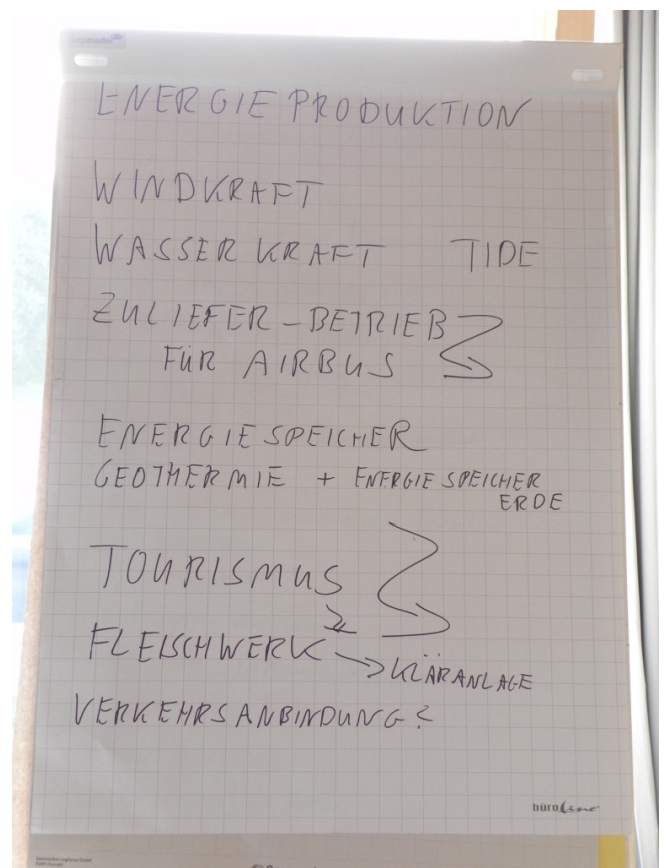 ENERGIE PRODUKTION
WINDKRAFT
WASSERKRAFT TIDE
ZULIEFER-BETRIEB
FÜR AIRBUS
ENERGIESPEICHER
GEOTHERMIE + ENERGIESPEICHER
ERDE
TOURISMUS
FLEISCHWERK → KLÄRANLAGE
VERKEHRSANBINDUNG?
büroLine